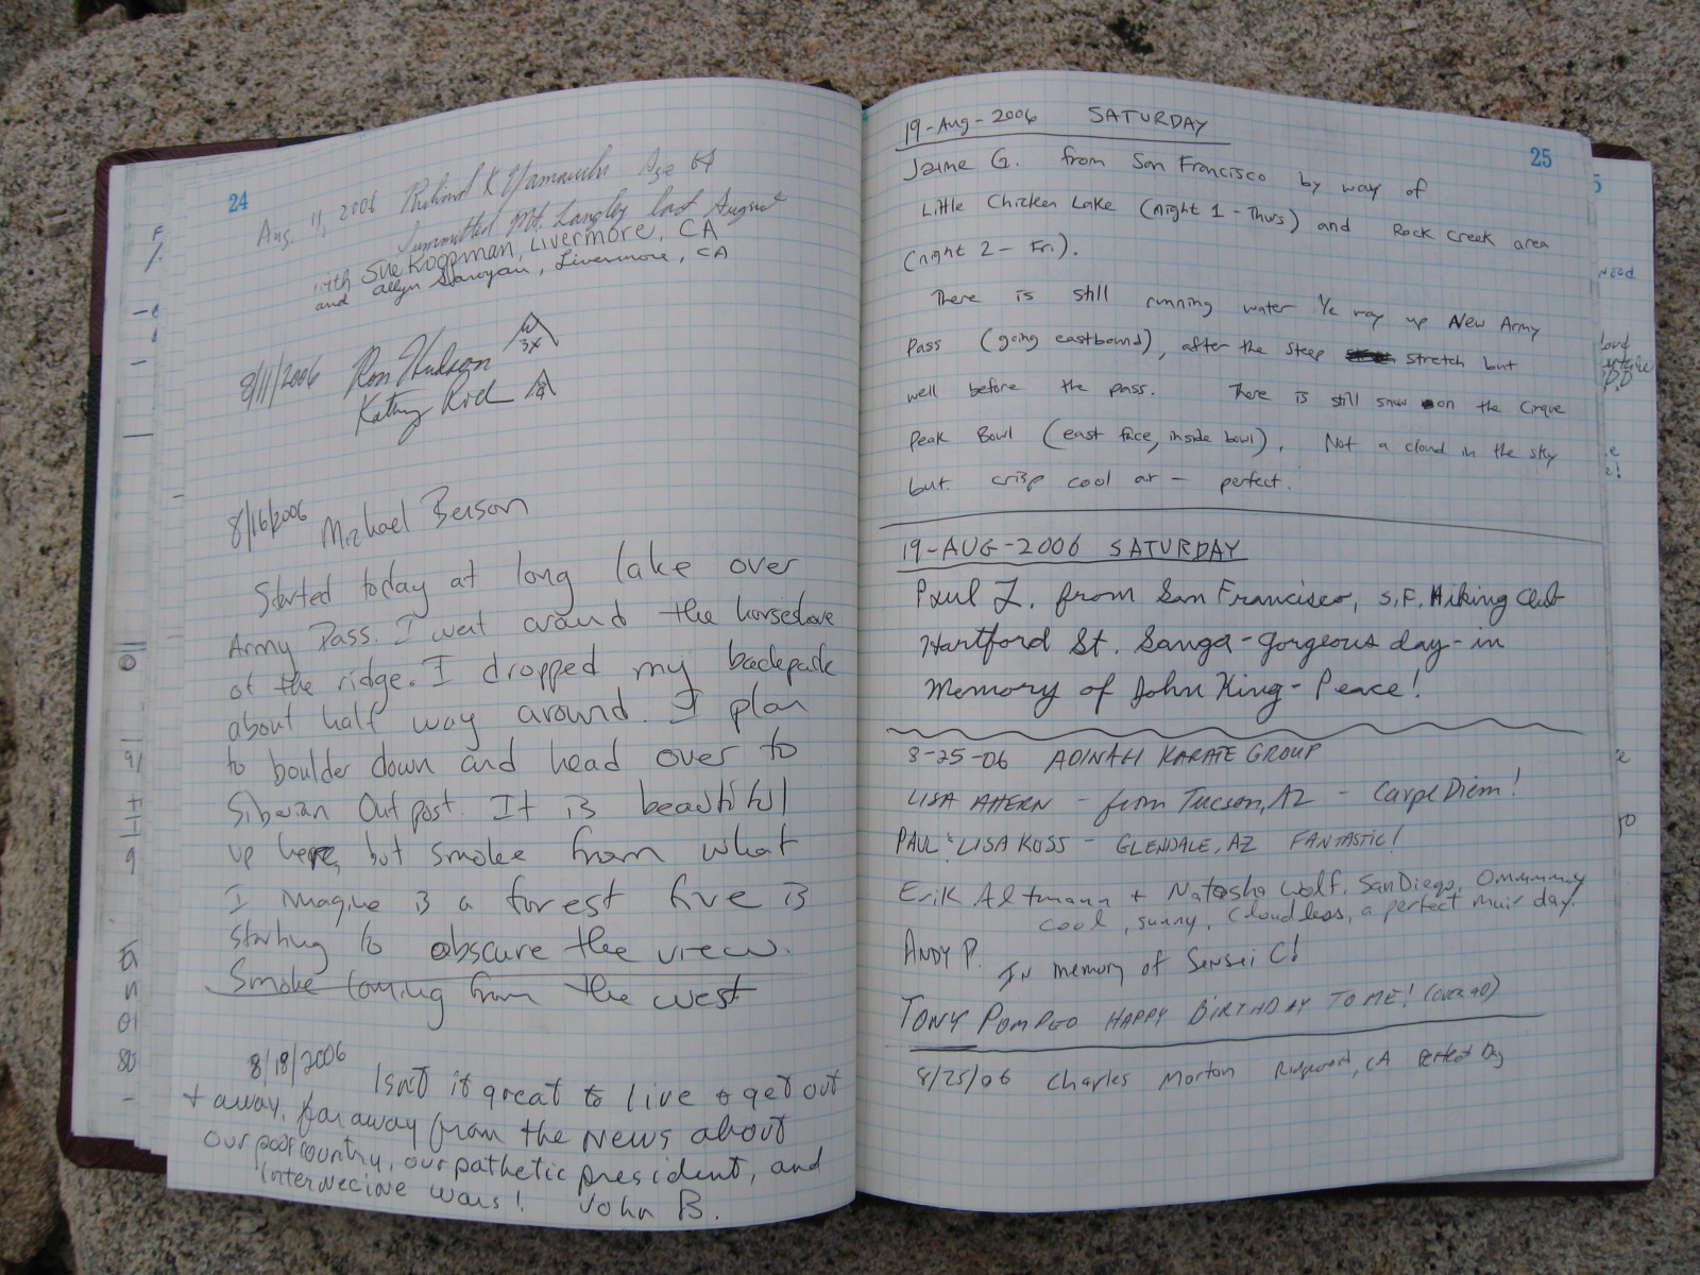 24
Aug. 11, 2006 Richard K Yamauchi Age 64
Summitted Mt. Langley last August
with Sue Koopman, Livermore, CA
and Allyn Saroyan, Livermore, CA
8/11/2006 Ron Hudson 3X
Kathy Rich
8/16/2006 Michael Berson
Started today at long lake over
Army Pass. I went around the horseshoe
of the ridge. I dropped my backpack
about half way around. I plan
to boulder down and head over to
Siberian Outpost. It is beautiful
up here, but smoke from what
I imagine is a forest fire is
starting to obscure the view.
Smoke coming from the west
8/18/2006 Isn't it great to live + get out
+ away, far away from the news about
our poor country, our pathetic president, and
internecine wars! John B.
25
19-Aug-2006 SATURDAY
Jaime G. from San Francisco by way of
Little Chicken Lake (night 1 - Thurs) and Rock Creek area
(night 2 - Fri).
There is still running water 1/2 way up New Army
Pass (going eastbound), after the steep stretch but
well before the pass. There is still snow on the Cirque
Peak Bowl (east face, inside bowl). Not a cloud in the sky
but crisp cool air - perfect.
19-AUG-2006 SATURDAY
Paul Z. from San Francisco, S.F. Hiking Club
Hartford St. Sanga - gorgeous day - in
Memory of John King - Peace!
8-25-06 ADINAH KARATE GROUP
LISA AHERN - from Tucson, AZ - Carpe Diem!
PAUL & LISA KOSS - GLENDALE, AZ FANTASTIC!
Erik Altmann + Natasha Wolf, San Diego.
cool, sunny, cloudless, a perfect muir day.
ANDY P. IN memory of Sensei C!
TONY POMPEO HAPPY BIRTHDAY TO ME! (OVER 40)
8/25/06 Charles Morton Ridgecrest, CA Perfect Day